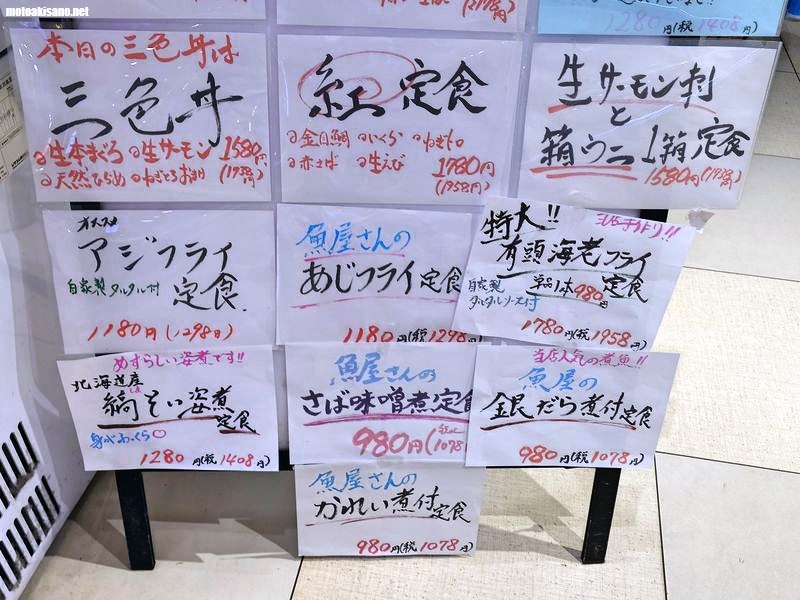 motoakisano.net
1280円(税1408円)
本日の三色丼は
三色丼
生本まぐろ 生サーモン
天然ひらめ ねぎとろ
1580円
(1738円)
紅定食
金目鯛 いくら ねぎとろ
赤えび 生えび
1780円
(1958円)
生サーモン刺
と
箱ウニ1箱定食
1580円(1738円)
オススメ
アジフライ
定食
自家製タルタル付
1180円(1298円)
魚屋さんの
あじフライ定食
1180円(税1298円)
特大!!
手作り!!
有頭海老フライ
定食
自家製
タルタルソース付
単品1本980円
1780円(税1958円)
めずらしい姿煮です!!
北海道産
縞そい姿煮
定食
身がふっくら♡
1280円(税1408円)
魚屋さんの
さば味噌煮定食
980円(税込1078
当店人気の煮魚!!
魚屋の
銀だら煮付定食
980円(税1078円)
魚屋さんの
かれい煮付定食
980円(税1078円)